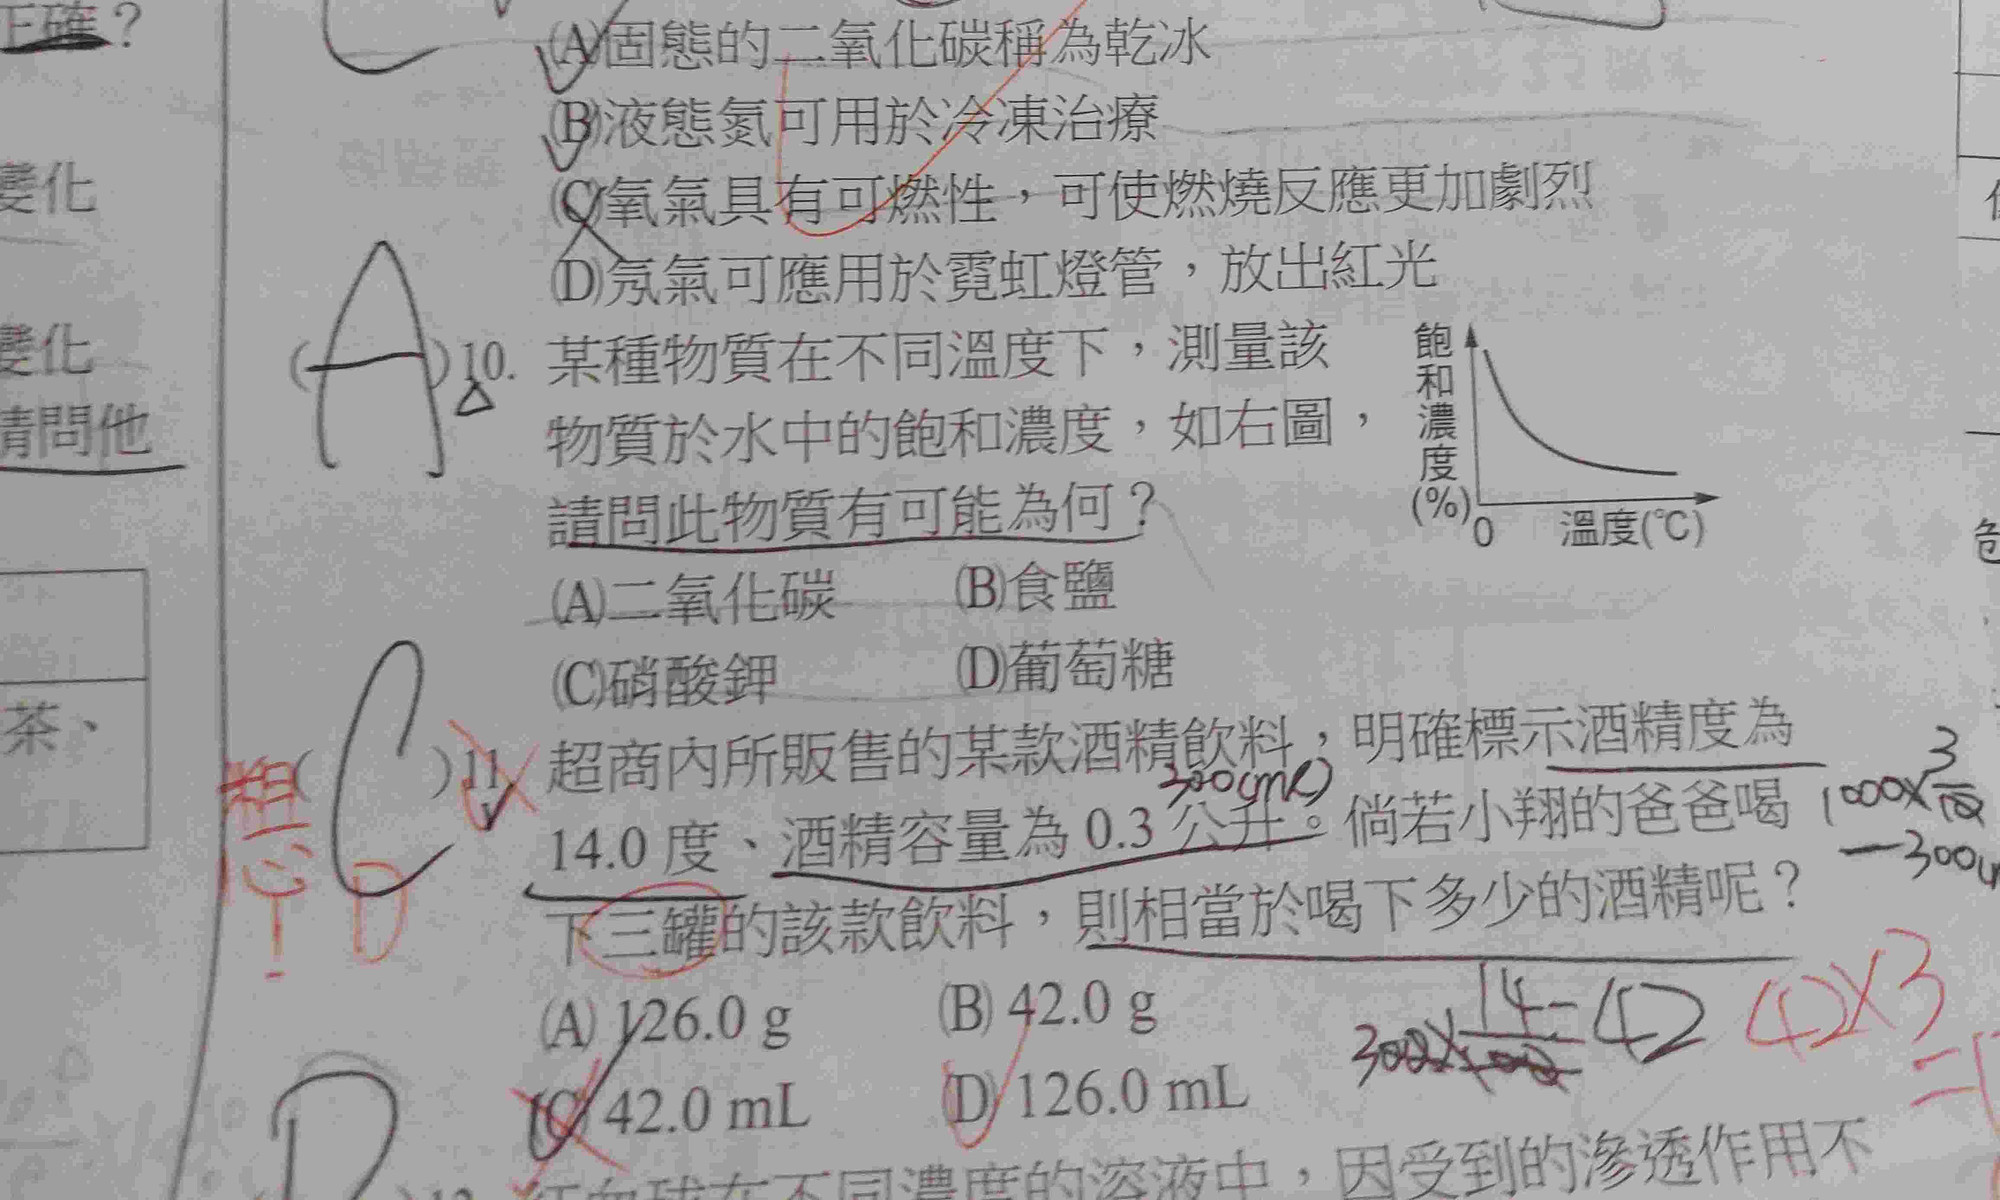 正確？
變化
變化
請問他
茶、
(A)固態的二氧化碳稱為乾冰
(B)液態氮可用於冷凍治療
(C)氧氣具有可燃性，可使燃燒反應更加劇烈
(D)氖氣可應用於霓虹燈管，放出紅光
(A)10. 某種物質在不同溫度下，測量該
物質於水中的飽和濃度，如右圖，
請問此物質有可能為何？
飽和濃度(%)
0
溫度(℃)
(A)二氧化碳 (B)食鹽
(C)硝酸鉀 (D)葡萄糖
粗心！
(C)11. 超商內所販售的某款酒精飲料，明確標示酒精度為
D
300(mL)
14.0 度、酒精容量為 0.3 公升。倘若小翔的爸爸喝
1000×3/10
=300
下三罐的該款飲料，則相當於喝下多少的酒精呢？
(A) 126.0 g (B) 42.0 g
300×14/100=42
42×3
=1
(C) 42.0 mL (D) 126.0 mL
D
紅血球在不同濃度的溶液中，因受到的滲透作用不